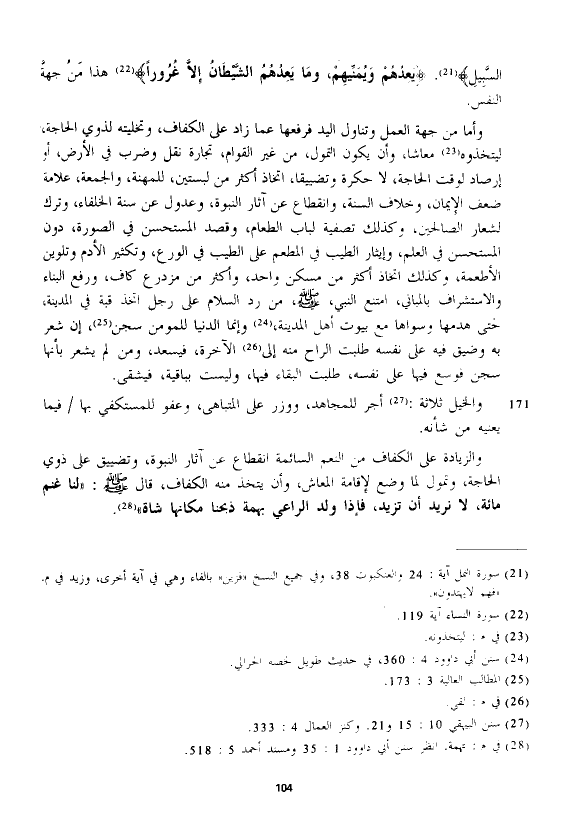 السَّبِيلِ﴾(21). ﴿يَعِدُهُمْ وَيُمَنِّيهِمْ، ومَا يَعِدُهُمُ الشَّيْطَانُ إِلاَّ غُرُوراً﴾(22) هذا مَنُ جهةَ
النفس.
وأما من جهة العمل وتناول اليد فرفعها عما زاد على الكفاف، وتخليته لذوي الحاجة،
ليتخذوه(23) معاشا، وأن يكون التمول، من غير القوام، تجارة نقل وضرب في الأرض، أو
إرصاد لوقت الحاجة، لا حكرة وتضييقا، اتخاذ أكثر من لبستين، للمهنة، والجمعة، علامة
ضعف الإيمان، وخلاف السنة، وانقطاع عن آثار النبوة، وعدول عن سنة الخلفاء، وترك
لشعار الصالحين، وكذلك تصفية لباب الطعام، وقصد المستحسن في الصورة، دون
المستحسن في العلم، وإيثار الطيب في المطعم على الطيب في الورع، وتكثير الأدم وتلوين
الأطعمة، وكذلك اتخاذ أكثر من مسكن واحد، وأكثر من مزدرع كاف، ورفع البناء
والاستشراف بالمباني، امتنع النبي، ﷺ، من رد السلام على رجل اتخذ قبة في المدينة،
حتى هدمها وسواها مع بيوت أهل المدينة،(24) وإنما الدنيا للمومن سجن(25)، إن شعر
به وضيق فيه على نفسه طلبت الراح منه إلى(26) الآخرة، فيسعد، ومن لم يشعر بأنها
سجن فوسع فيها على نفسه، طلبت البقاء فيها، وليست بباقية، فيشقى.
171 والخيل ثلاثة :(27) أجر للمجاهد، ووزر على المتباهى، وعفو للمستكفي بها / فيما
يعنيه من شأنه.
والزيادة على الكفاف من النعم السائمة انقطاع عن آثار النبوة، وتضييق على ذوي
الحاجة، وتمول لما وضع لإقامة المعاش، وأن يتخذ منه الكفاف، قال ﷺ : «لنا غنم
مائة، لا نريد أن تزيد، فإذا ولد الراعي بهمة ذبحنا مكانها شاة»(28).
(21) سورة النمل آية : 24 والعنكبوت 38، وفي جميع النسخ «فزين» بالفاء وهي في آية أخرى، وزيد في م.
«فهم لايهتدون».
(22) سورة النساء آية 119.
(23) في ه : ليتخذونه.
(24) سنن أبي داوود 4 : 360، في حديث طويل لخصه الحرالي.
(25) المطالب العالية 3 : 173.
(26) في ه : لفي.
(27) سنن البيهقي 10 : 15 و21. وكنز العمال 4 : 333.
(28) في ه : تهمة. انظر سنن أبي داوود 1 : 35 ومسند أحمد 5 : 518.
104